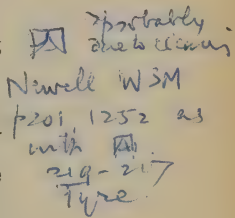 ? probably
due to
Newell WSM
p201, 1252 as
with
219-217
Tyre.